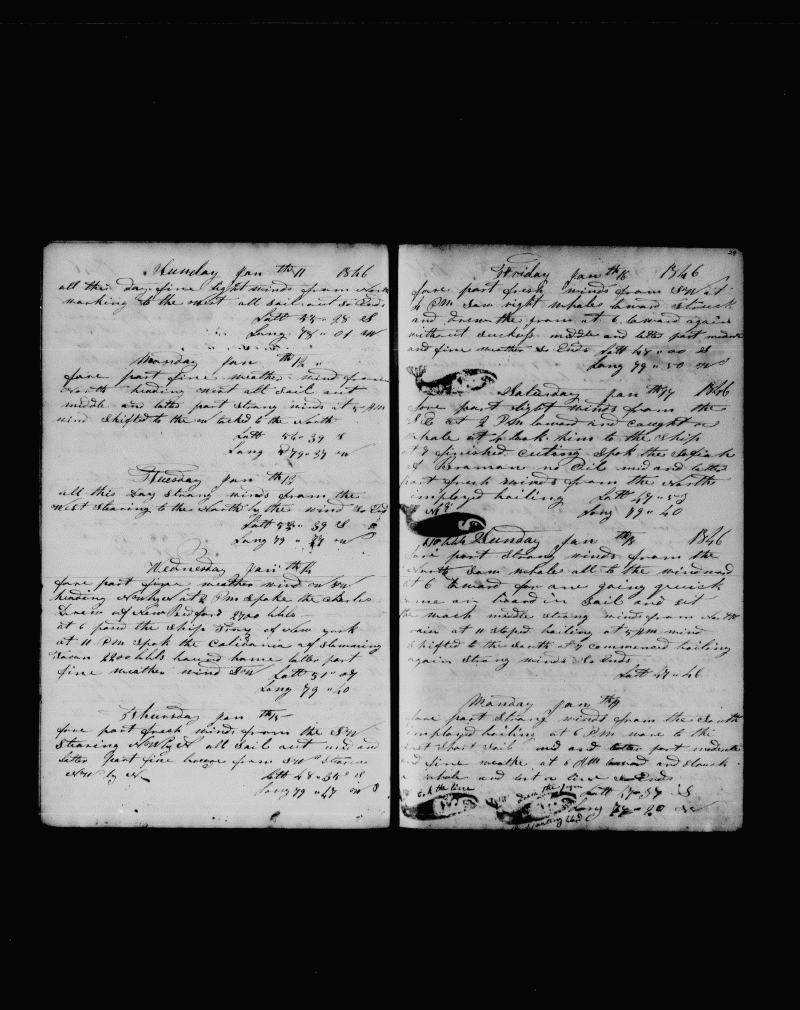 Sunday Jan th 11 1846
all this day fine light winds from North
working to the west all sail out So Ends
Latt 55 " 28 S
Long 78 " 01 W
Monday Jan th 12 "
fore part fine weather wind from
North heading west all Sail out
middle and latter part Strang winds at 5 AM
wind Shifted to the w tacked to the North
Latt 54 " 39 S
Long 79 " 37 W
Tuesday Jan th 13
all this Day Strang winds from the
West Stearing to the North by the wind So Ends
Latt 53 " 39 S
Long 79 " W
Wednesday Jan th 14
fore part fine weather wind W SW
heading at 2 PM Spoke the Charles
Drew of New Bedford 2700 bbls
at 6 passd the Ship of New york
at 11 PM Spok the Calidonia of Stonning
Town 2200 bbls bound home latter part
fine weather wind SW Latt 51 " 07
Long 79 " 40
Thursday Jan th 15
fore part fresh winds from the SW
Stearing NW by N all Sail out mid and
latter part fine breeze from SW Stearin
NW by N Latt 48 " 35 S
Long 79 " 47 W
24
Friday Jan th 16 1846
fore part fresh winds from SW at
4 PM Saw right whales Loward Struck
and drew the iron at 6 Loward again
without Suckses middle and latter part
and fine weather So Ends Latt 48 " 00 S
Long 79 " 50 W
Saturday Jan th 17 1846
fore part light winds from the
S E at 2 PM Loward and caught a
whale at 4 took him to the Ship
at 7 finished cuting Spok the
of no Oil mid and latter
part fresh winds from the North
imployd boiling Latt 47 " 53
Long 79 " 40
Sunday Jan th 18 1846
fore part Strang winds from the
North Saw whales all to the windward
at 6 Loward for one going quick
came on board in Sail and set
the mach middle Strang winds from North
rain at 11 Stoped boiling at 5 AM wind
Shifted to the South at 7 commenced boiling
again Strang winds So Ends
Latt 47 " 46
Monday Jan th 19
fore part Strang winds from the South
imployd boiling at 6 PM ware to the
Short Sail mid and latter part moderate
and fine weathe at 6 AM Loward and Struck
a whale and lost a line So Ends
took the line Latt 47 " 37 S
drew the iron Long 79 " 20 W